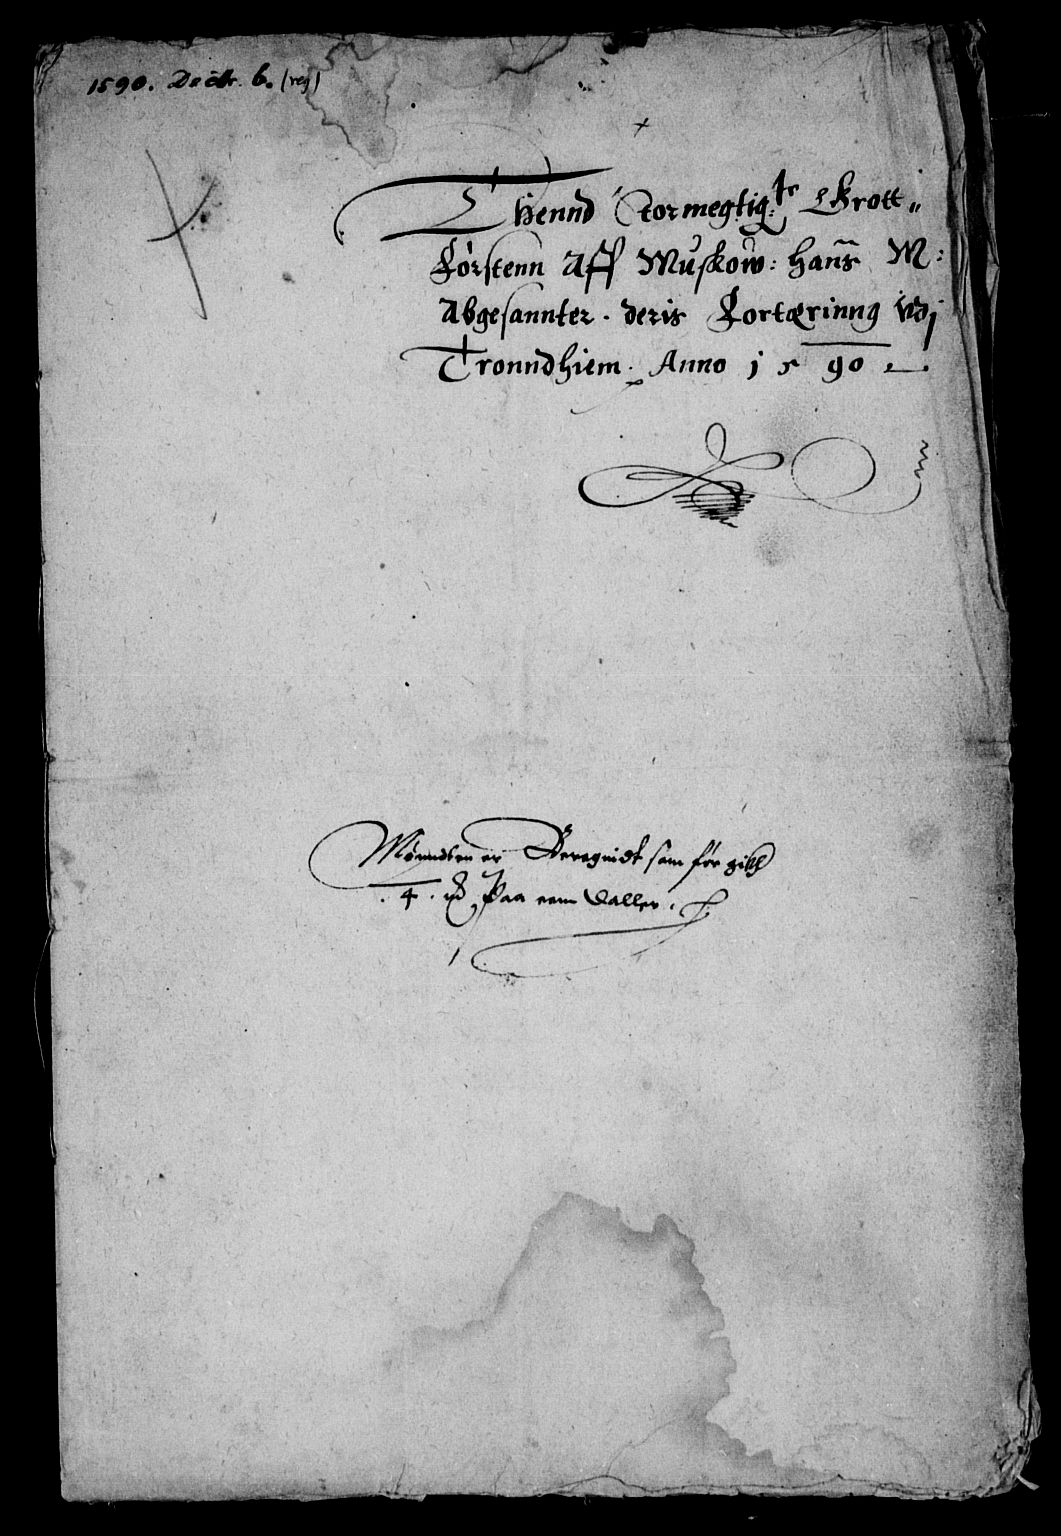 1590. Decbr. 6. (reg)
Thennd Stormegtigste Grott„
Förstenn Aff Muskow: hans M:
Abgesannter. deris Fortæring udj
Tronndhiem. Anno 1590.
Mønndten er Beregnidt som för gikk
4. Paa eenn daller.